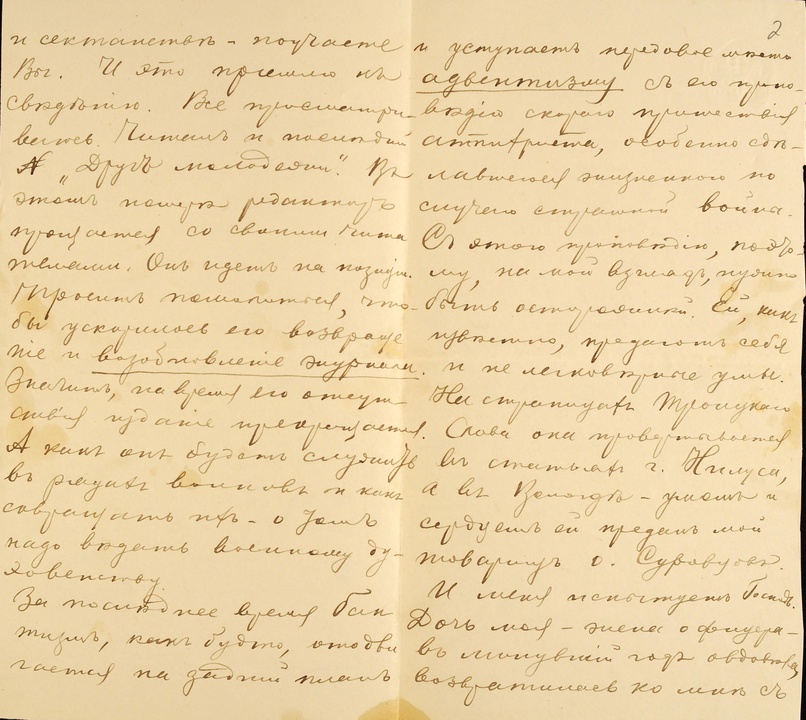 и сектанствѣ – поучаете
Вы. И это пришло къ
свѣдѣнiю. Все просматри-
ваюсь. Читалъ и последнiй
№ "Другъ молодежи". Въ
этомъ номерѣ редакторъ
прощается со своими чита
телями. Онъ идетъ на позицiи.
Проситъ помолиться, что-
бы ускорилось его возвраще
нiе и возобновленiе журнала.
Значитъ, на время его отсут-
ствiя изданiе прекращается.
А какъ онъ будетъ служить
въ рядахъ воиновъ и какъ
совращать ихъ – о томъ
надо вѣдать военному ду-
ховенству.
За последнее время бап
тизмъ, какъ будто, отодви
гается на заднiй планъ
2
и уступаетъ передовое мѣсто
адвентизму съ его пропо-
вѣдiю скораго пришествiя
антихриста, особенно сдѣ-
лавшейся жизненною по
случаю страшной войны.
Съ этого проповѣдiю, поэто-
му, на мой взглядъ, нужно
быть осторожнѣй. Ей, какъ
извѣстно, предаютъ себя
и не легковѣрные умы.
На страницахъ Троицкаго
Слова она проверTывается
въ статьяхъ г. Нилуса,
а въ Вологдѣ – умомъ и
сердцемъ ей преданъ мой
товарищъ о. Суровцовъ.
И меня испытуетъ Господь.
Дочь моя – жена офицера –
въ минувшiй годъ овдовѣла,
возвратилась ко мнѣ съ